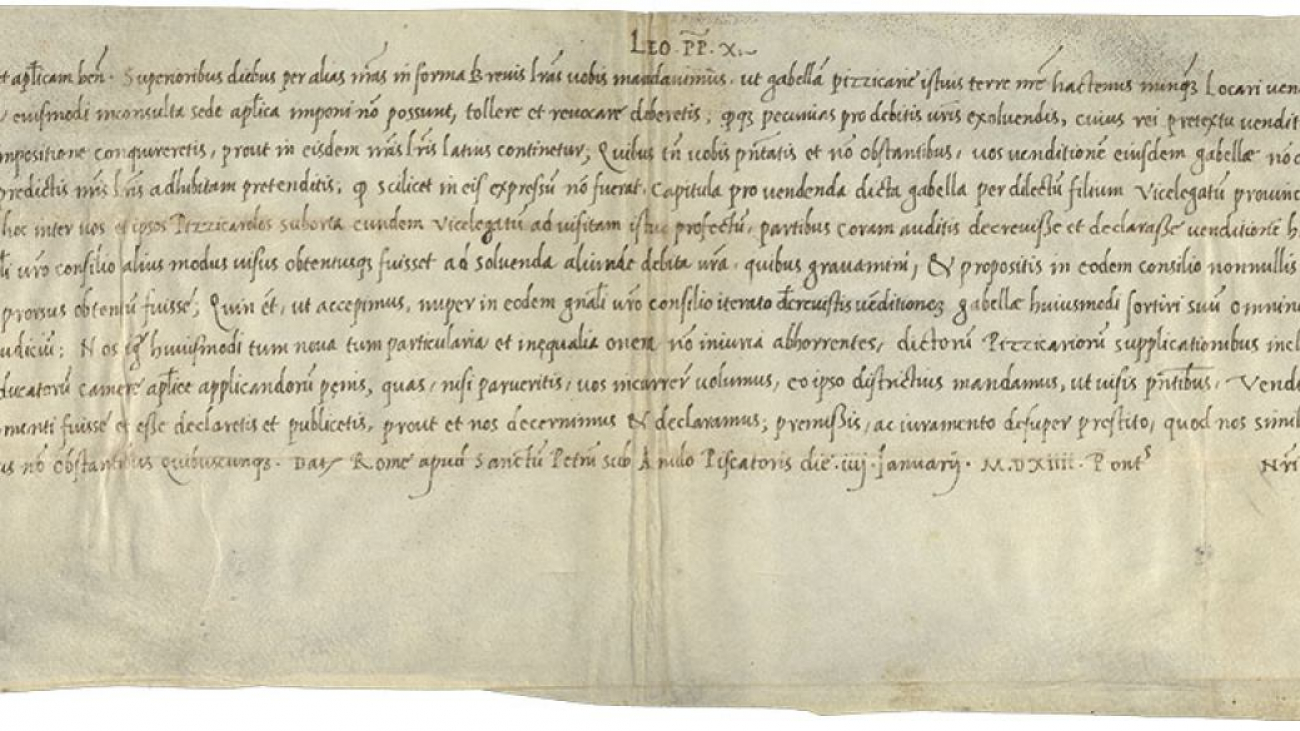 LEO PP. X.
et aplicam ben. Superioribus diebus per alias nras in forma Brevis lras vobis mandavimus, ut gabellā pizzicarie istius terre nre hactenus nunqz Locari
eiusmodi inconsulta sede aplica imponi nō possunt, tollere et revocare deberetis, pecunias pro debitis vris exolvendis, cuius rei pretextu vendit
mpositione conquireretis, prout in eisdem nris lris latius continetur; Quibus tn vobis pntatis et nō obstantibus, vos venditionē eiusdem gabellæ nō
predictis nris lris adhibitam pretenditis, scilicet in eis expressū nō fuerat. Capitula pro vendenda dicta gabella per dilectū filium Vicelegatū provinc
hoc inter vos et ipsos Pizzicarolos suborta eundem Vicelegatū ad visitam istuc profectū, partibus coram auditis decrevisse et declarasse venditionē h
vro consilio alius modus visus obtentusqz fuisset ad solvenda aliunde debita vra, quibus gravamini, & propositis in eodem consilio nonnullis
prorsus obtentū fuisse; Quin et, ut accepimus, nuper in eodem gnali vro consilio iterato decrevistis venditionez gabellæ huiusmodi sortiri suū omnin
udiciū: Nos igr huiusmodi tum nova tum particularia et inęqualia onera nō iniuria abhorrentes, dictorū Pizzicariorū supplicationibus incl
ducatorū camere aplice applicandorū pęnis, quas, nisi parueritis, vos incurrer volumus, eo ipso districtius mandamus, ut visis pntibus, Vend
menti fuisse et esse declaretis et publicetis, prout et nos decernimus & declaramus; premissis, ac iuramento desuper prestito, quod nos simil
us nō obstantibus quibuscunqz. Dat Rome apud Sanctū Petrū sub Anulo Piscatoris die iiij Januarij. M.DXIIII. Pont^s Nri